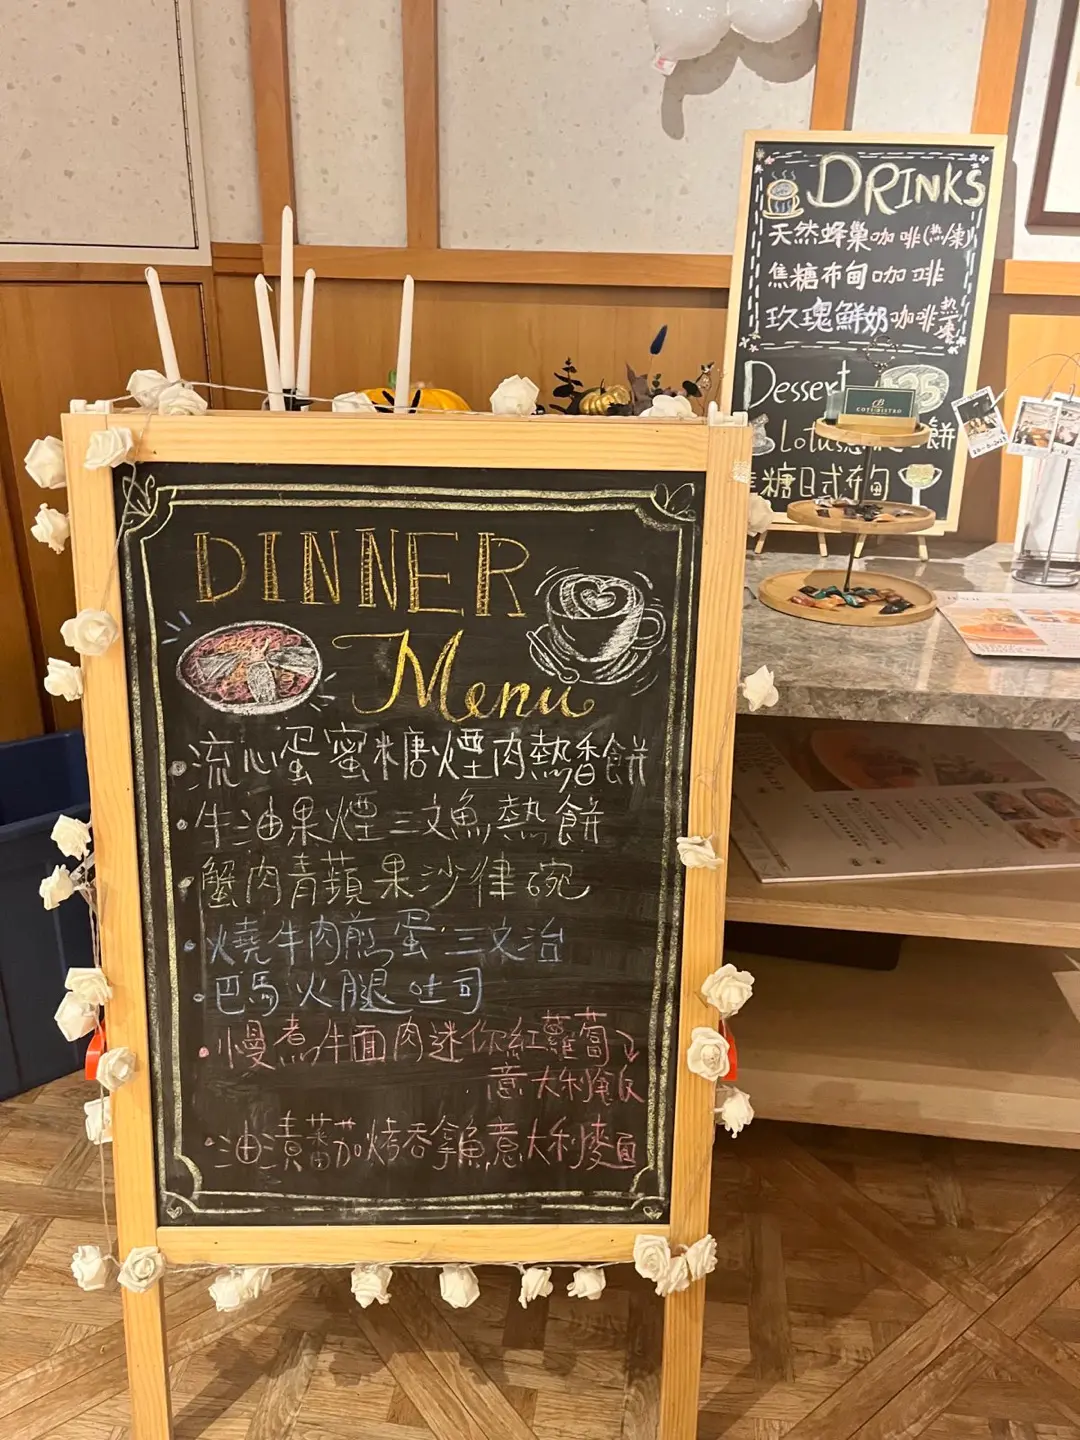 DINNER
Menu
流心蛋蜜糖煙肉熱香餅
牛油果煙三文魚熱餅
蟹肉青蘋果沙律碗
燒牛肉煎蛋三文治
巴馬火腿吐司
慢煮牛面肉迷你紅蘿蔔
意大利飯
油漬蕃茄烤吞拿魚意大利麵
DRINKS
天然蜂巢咖啡(熱/凍)
焦糖布甸咖啡
玫瑰鮮奶咖啡熱/凍
Dessert
Lotus
餅
糖日式布甸
COTE BISTRO